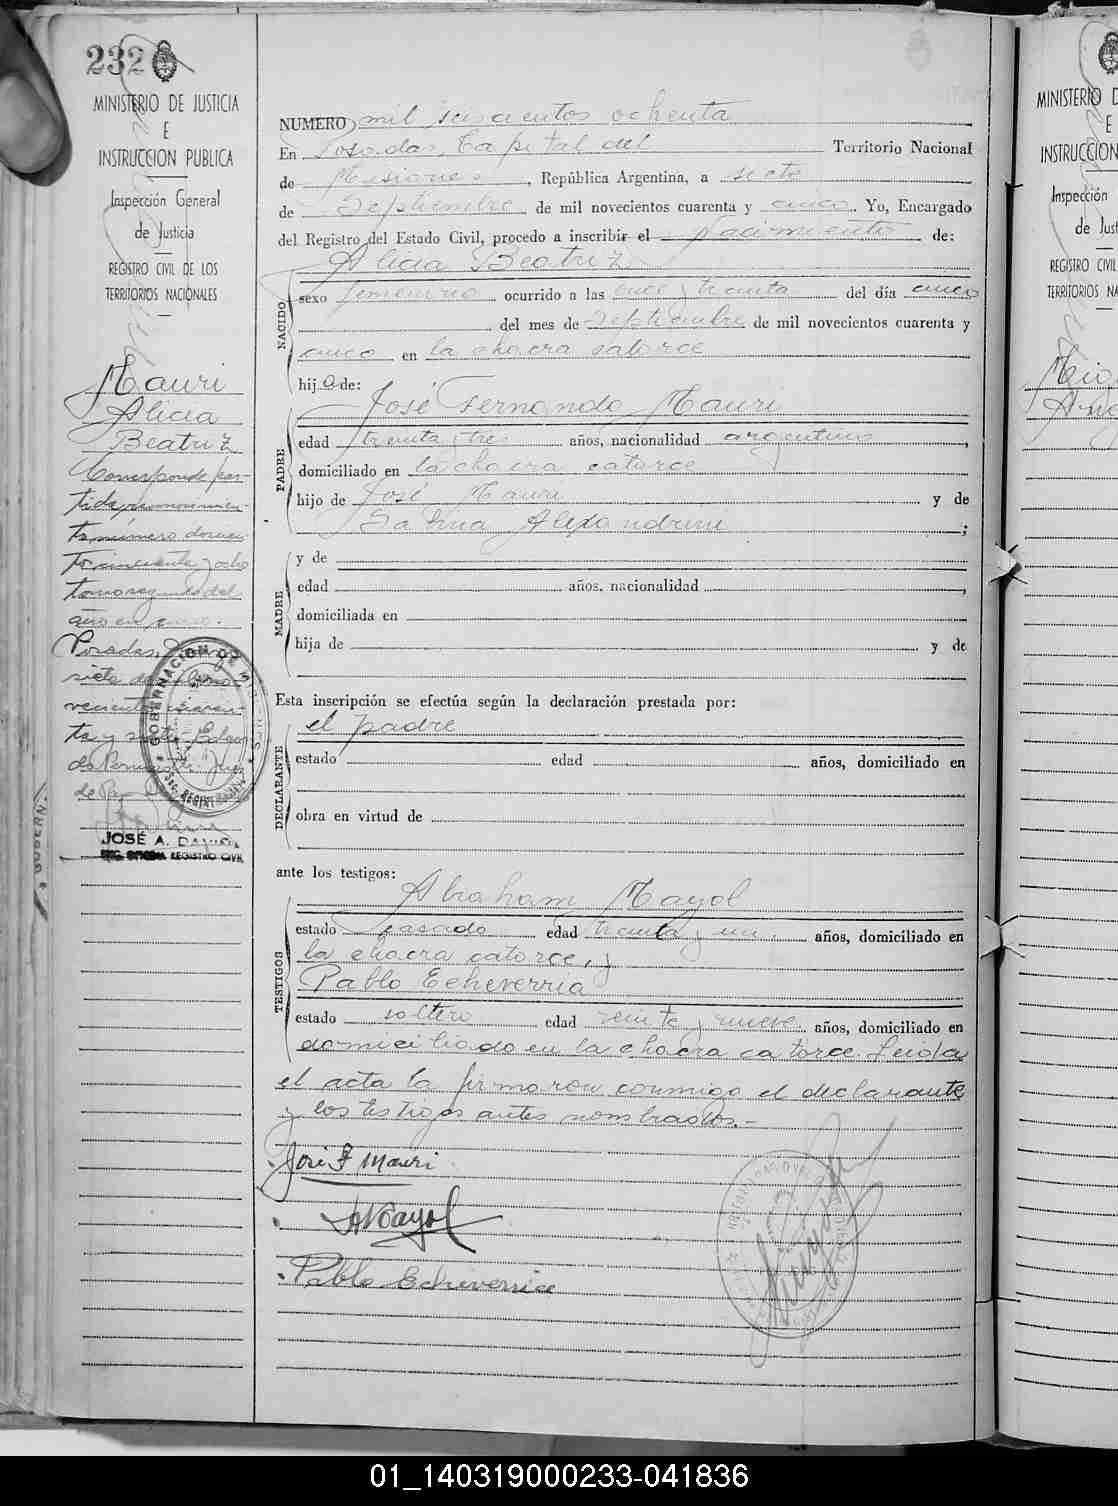 232
MINISTERIO DE JUSTICIA
E
INSTRUCCION PUBLICA
Inspección General
de Justicia
REGISTRO CIVIL DE LOS
TERRITORIOS NACIONALES
Mauri
Alicia
Beatriz
Corresponde par-
tida
número
to cincuenta y ocho
tomo segundo del
año en curso.
Posadas,
siete de
vecientos cuaren-
ta y
de Paz
JOSÉ A.
REGISTRO CIVIL
NUMERO mil seiscientos ochenta
En Posadas, Capital del Territorio Nacional
de Misiones, República Argentina, a siete
de Septiembre de mil novecientos cuarenta y cinco. Yo, Encargado
del Registro del Estado Civil, procedo a inscribir el Nacimiento de:
Alicia Beatriz
NACIDO
sexo femenino ocurrido a las once y treinta del día cinco
del mes de Septiembre de mil novecientos cuarenta y
cinco en la chacra catorce
hija de:
José Fernando Mauri
PADRE
edad treinta y tres años, nacionalidad argentino,
domiciliado en la chacra catorce
hijo de José Mauri y de
Alexandrini;
MADRE
y de
edad años, nacionalidad
domiciliada en
hija de y de
Esta inscripción se efectúa según la declaración prestada por:
el padre
DECLARANTE
estado edad años, domiciliado en
obra en virtud de
ante los testigos:
Abraham Mayol
TESTIGOS
estado casado edad treinta y un años, domiciliado en
la chacra catorce, y
Pablo Echeverria
estado soltero edad veinte y nueve años, domiciliado en
domiciliado en la chacra catorce. Leida
el acta la firmaron conmigo el declarante
y los testigos antes nombrados.-
José F Mauri
A Mayol
Pablo Echeverria
MINISTERIO D
E
INSTRUCCION
Inspección
de Just
REGISTRO CIVIL
TERRITORIOS NA
01_140319000233-041836